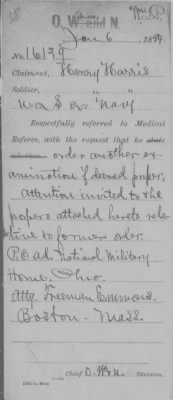 O. W. and N.
Jan 6, 1894.
No. 16139
Claimant, Henry Harris
Soldier,
U.S. "Navy"
Respectfully referred to Medical
Referee, with the request that he state
whether order another ex-
amination if deemed proper,
attention invited to the
papers attached hereto rela-
tive to former order.
P.O. ad. National Military
Home. Ohio.
Atty. Freeman Emmons.
Boston - Mass.
Chief O.W.&N. Division.